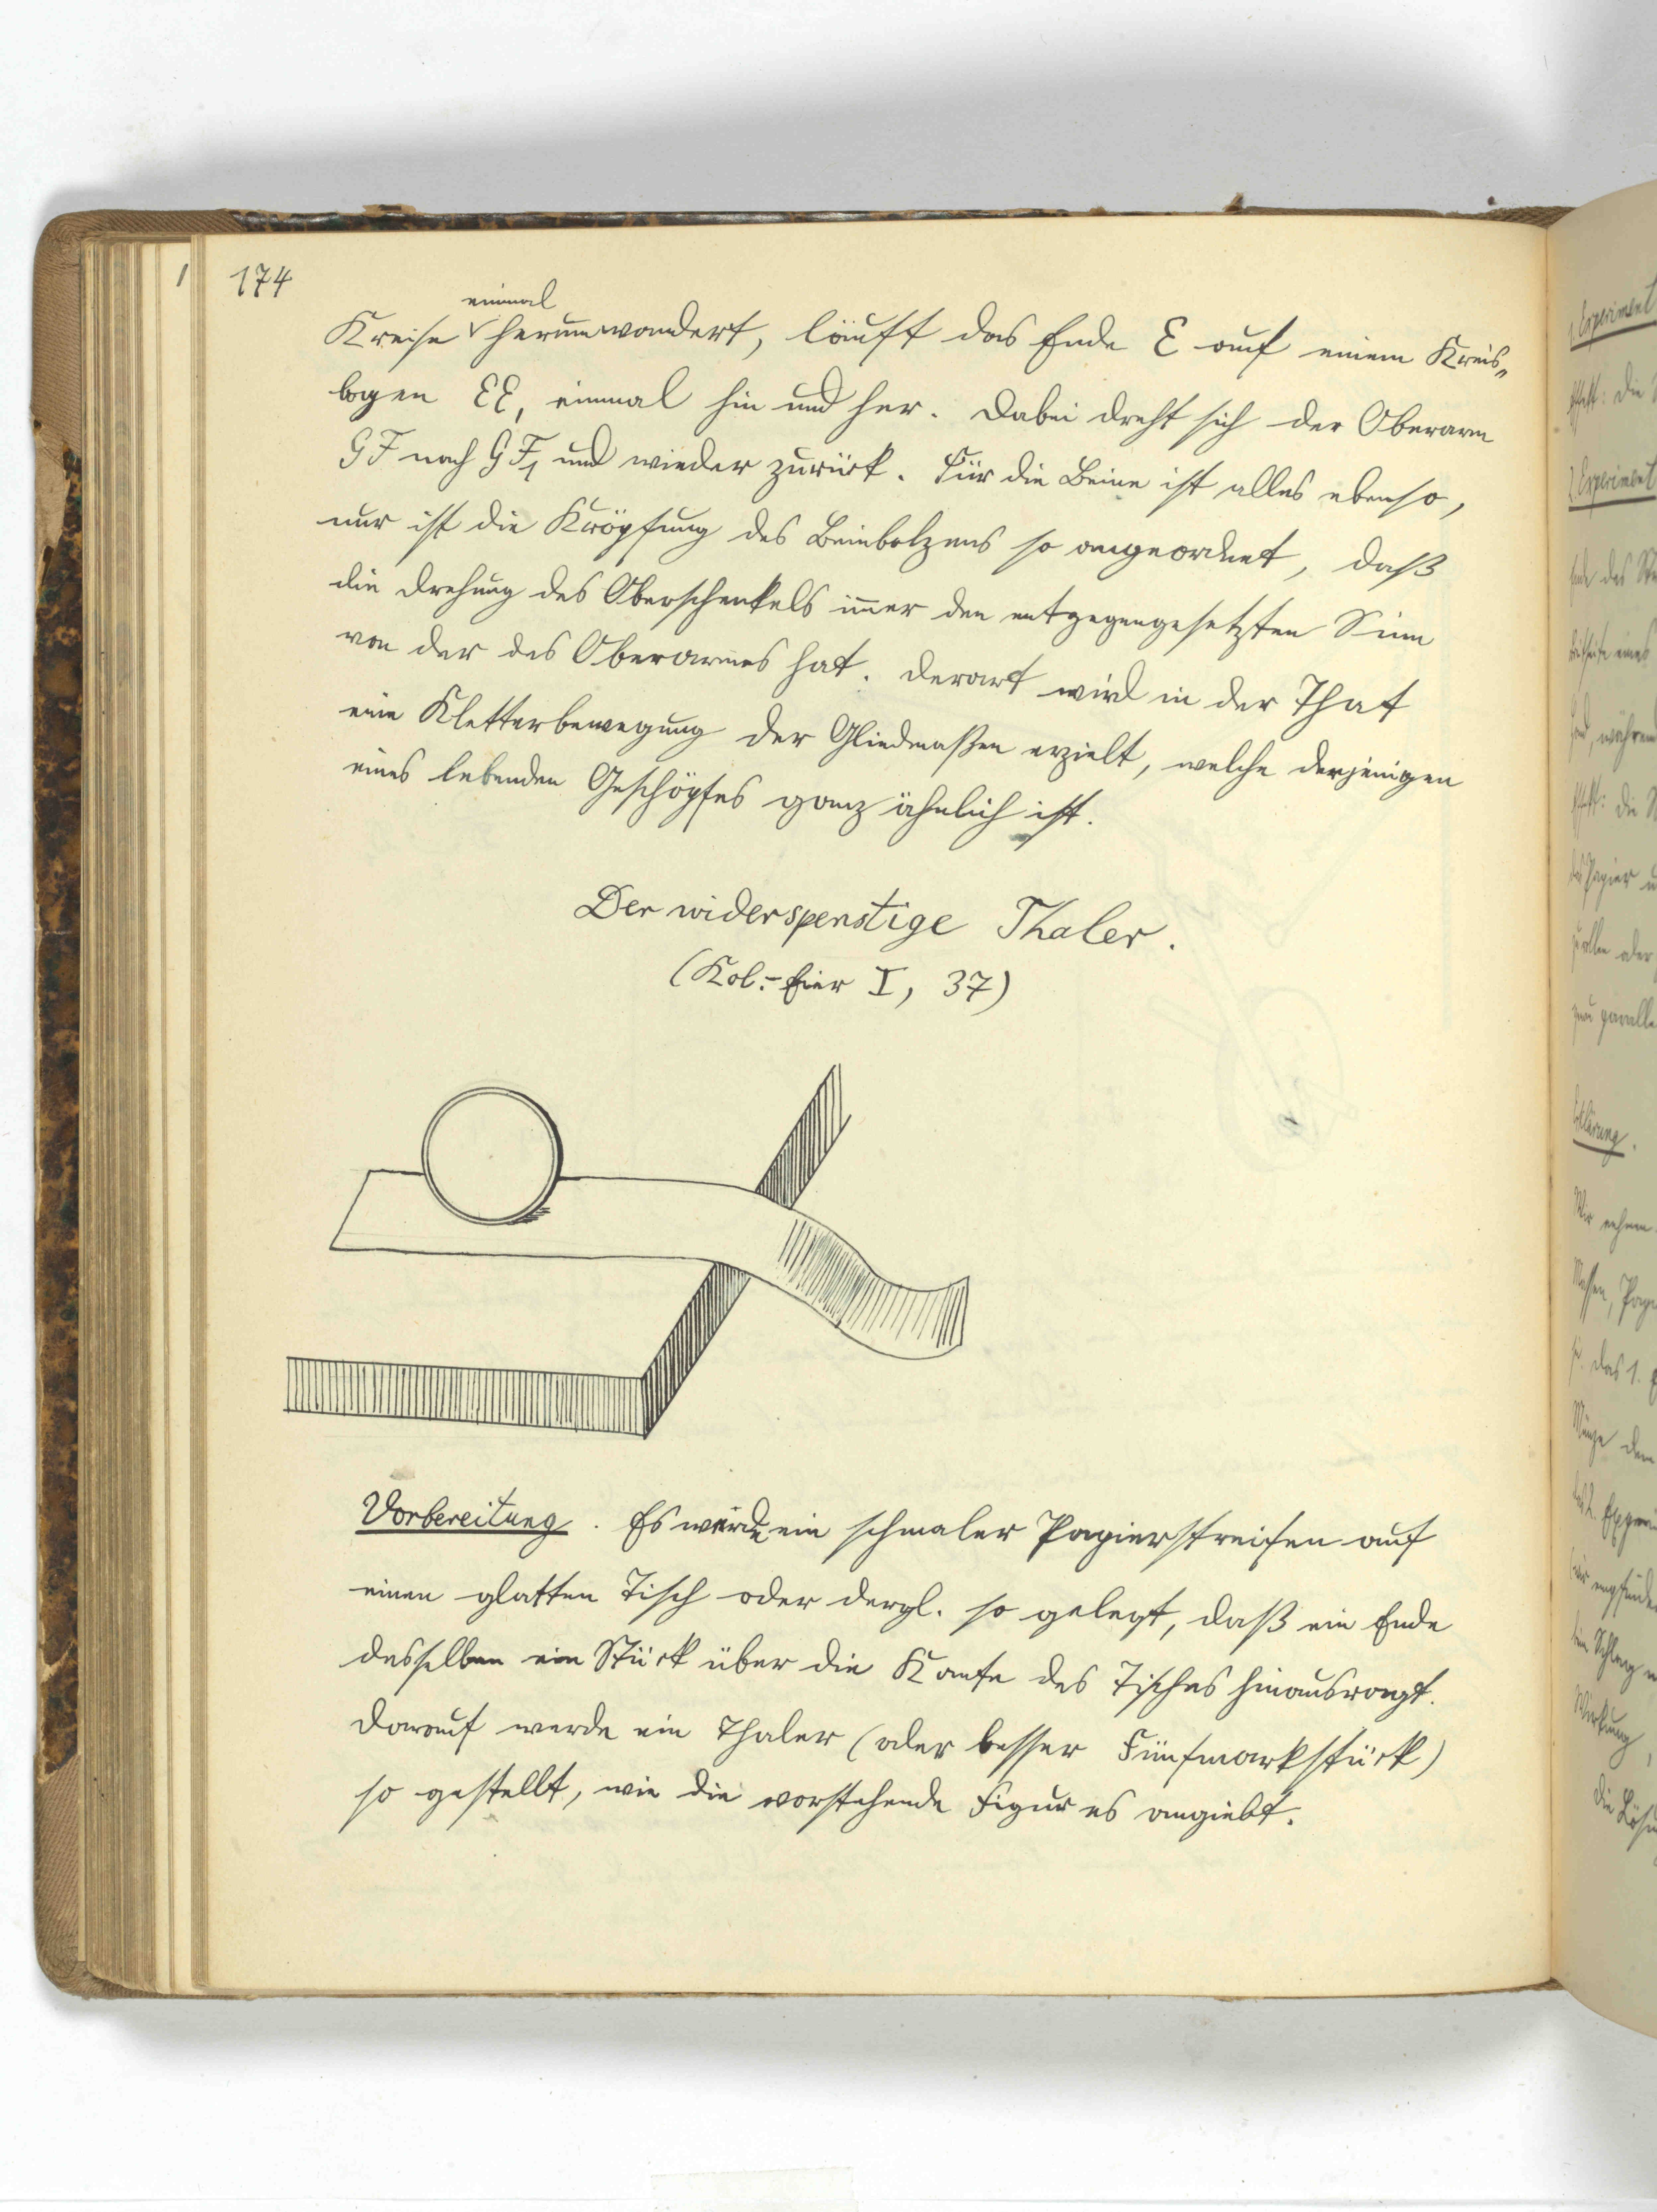 174
einmal
Kreise herumwandert, läuft das Ende E auf einem Kreis-
bogen EE, einmal hin und her. Dabei dreht sich der Oberarm
GF nach GF1 und wieder zurück. Für die Beine ist alles ebenso,
nur ist die Kröpfung des Beinbolzens so angeordnet, daß
die Drehung des Oberschenkels immer den entgegengesetzten Sinn
von der des Oberarmes hat. Derart wird in der That
eine Kletterbewegung der Gliedmaßen erzielt, welche derjenigen
eines lebenden Geschöpfes ganz ähnlich ist.
Der widerspenstige Thaler.
(Kol.-Eier I, 37)
Vorbereitung. Es werde ein schmaler Papierstreifen auf
einen glatten Tisch oder dergl. so gelegt, daß ein Ende
desselben ein Stück über die Kante des Tisches hinausragt.
Darauf werde ein Thaler (oder besser Fünfmarkstück)
so gestellt, wie die vorstehende Figur es angiebt.
Experiment
Experiment
Erklärung.
Wir nehmen